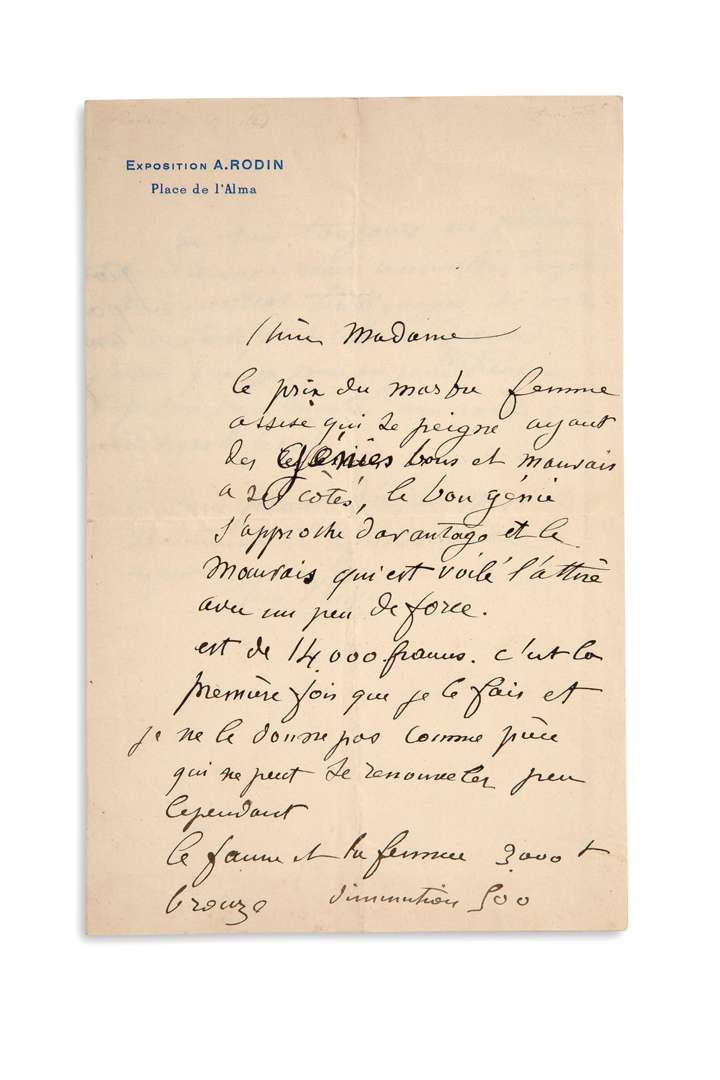 EXPOSITION A.RODIN
Place de l'Alma
Chère Madame
le prix du marbre femme
assise qui se peigne ayant
des génies bons et mauvais
a ses côtés, le bon génie
s'approche davantage et le
mauvais qui est voilé l'attire
avec un peu de force.
est de 14.000 francs. c'est la
première fois que je le fais et
je ne le donne pas comme pièce
qui ne peut se renouveler peu
cependant
le faune et la femme 3.000 f
bronze diminution 500